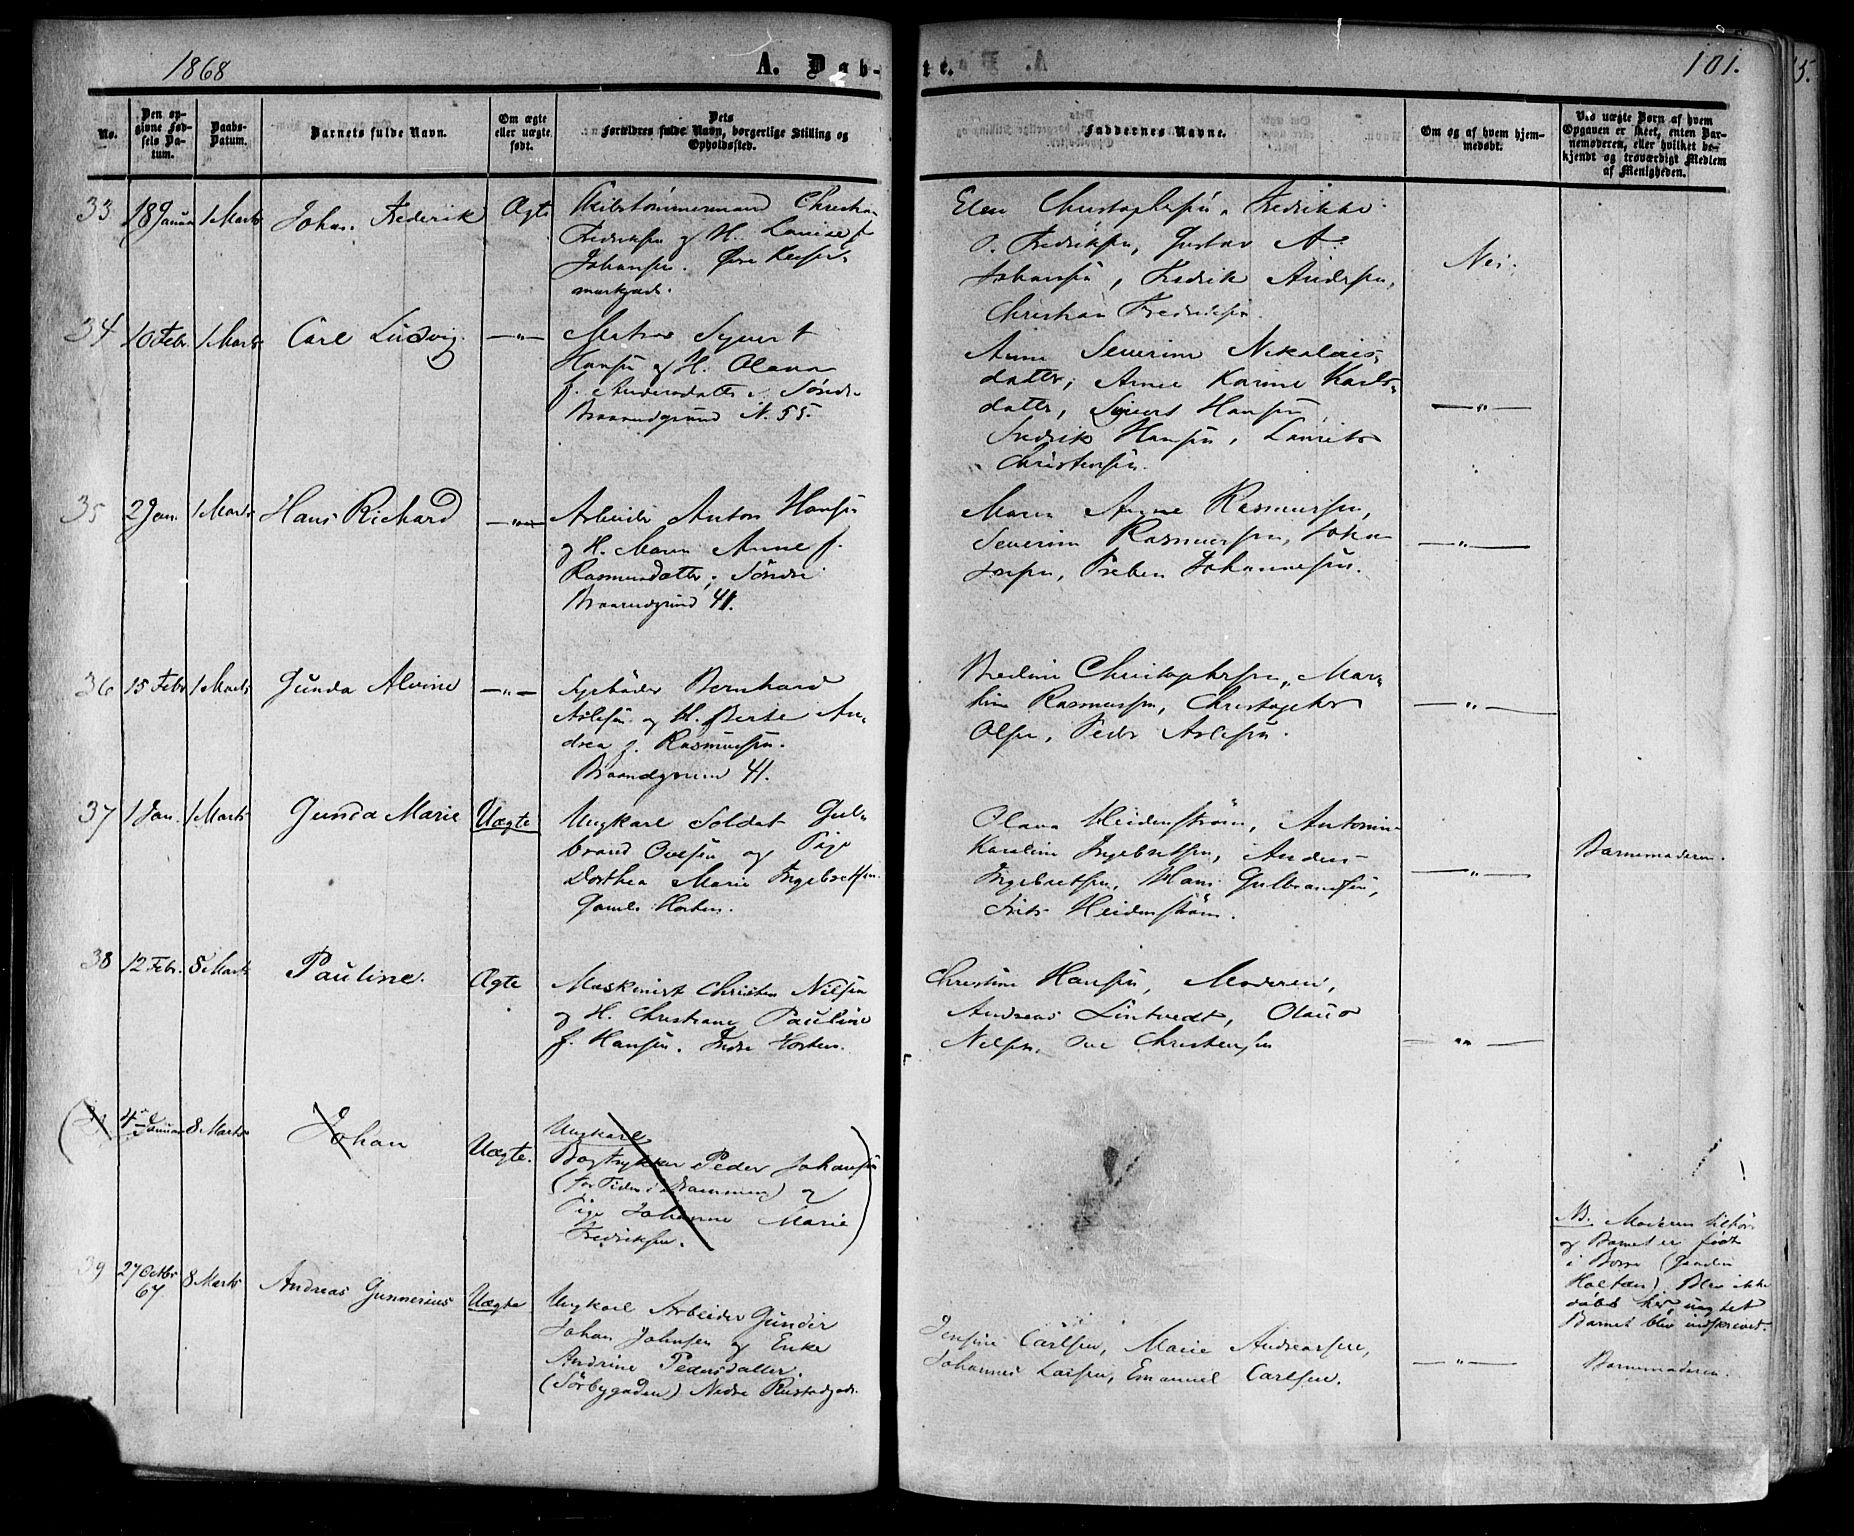 1868
A. Døbte.
101.
No.
Den opgivne Fødsels Datum.
Daabs-Datum.
Barnets fulde Navn.
Om ægte eller uægte født.
Dets Forældres fulde Navn, borgerlige Stilling og Opholdssted.
Faddernes Navne.
Om og af hvem hjemmedøbt.
Ved uægte Børn af hvem Opgaven er skeet, enten Barnemoderen, eller hvilket bekjendt og troværdigt Medlem af Menigheden.
33 18 Januar 1 Marts Johan Frederik Ægte
Skibstømmermand Christian
Fredriksen og H. Louise f.
Johansen. Øvre Keiser-
markgade.
Elen Christophersen, Fredrikke
O. Fredriksen, Gustav A.
Johansen, Fredrik Andersen,
Christian Fredriksen.
Nei.
34 10 Febr 1 Marts Carl Ludvig. —"—
Matros Syvert
Hansen og H. Olava
f. Andersdatter, Søndre
Braarudgrund N. 55.
Anne Severine Nikolais-
datter, Anne Karine Karls-
datter, Syvert Hansen,
Fredrik Hansen, Laurits
Christensen.
—"—
35 2 Jan. 1 Marts Hans Richard —"—
Arbeider Anton Hansen
og H. Maren Anne f.
Rasmusdatter, Søndre
Braarudgrund 41.
Maren Anne Rasmussen,
Severine Rasmussen, Johan
Preben Johannesen.
—"—
36 15 Febr 1 Marts Gunda Alvine —"—
Bernhard
Aslesen og H. Berte An-
drea f. Rasmussen.
Braarudgrund 41.
Christophersen, Mar-
tine Rasmussen, Christopher
Olsen, Peder Aslesen.
—"—
37 1 Jan. 1 Marts Gunda Marie Uægte
Ungkarl Soldat Gul-
brand Ovesen og Pige
Dorthea Marie Ingebretsen.
Gamle Horten.
Olava Heidenstrøm, Antonin
Karoline Ingebretsen, Anders
Ingebretsen, Hans Gulbrandsen,
Frits Heidenstrøm.
—"—
Barnemoderen.
38 12 Febr. 8 Marts Pauline. Ægte
Maskinist Christen Nilsen
og H. Christiane Pauline
f. Hansen. Indre Horten.
Christine Hansen, Moderen,
Andreas Lintvedt, Olaus
Nilsen, Ole Christensen
—"—
4de Januar 8 Marts Johan Uægte.
Ungkarl
Bogtrykker Peder Johansen
(for Tiden i Drammen) og
Pige Johanne Marie
Fredriksen.
NB. Moderen tilhører
og Barnet er født
i Borre (Gaarden
Holtan) Blev ikke
døbt her, uagtet
Barnet blev indskrevet.
39 27 Octbr 67 8 Marts Andreas Gunnerius Uægte
Ungkarl Arbeider Gunder
Johan Johnsen og Enke
Andrine Pedersdatter.
(Sørbygaden) Nedre Rustadgade.
Jensine Carlsen, Marie Andreassen,
Johannes Larsen, Emanuel Carlsen.
—"—
Barnemoderen.